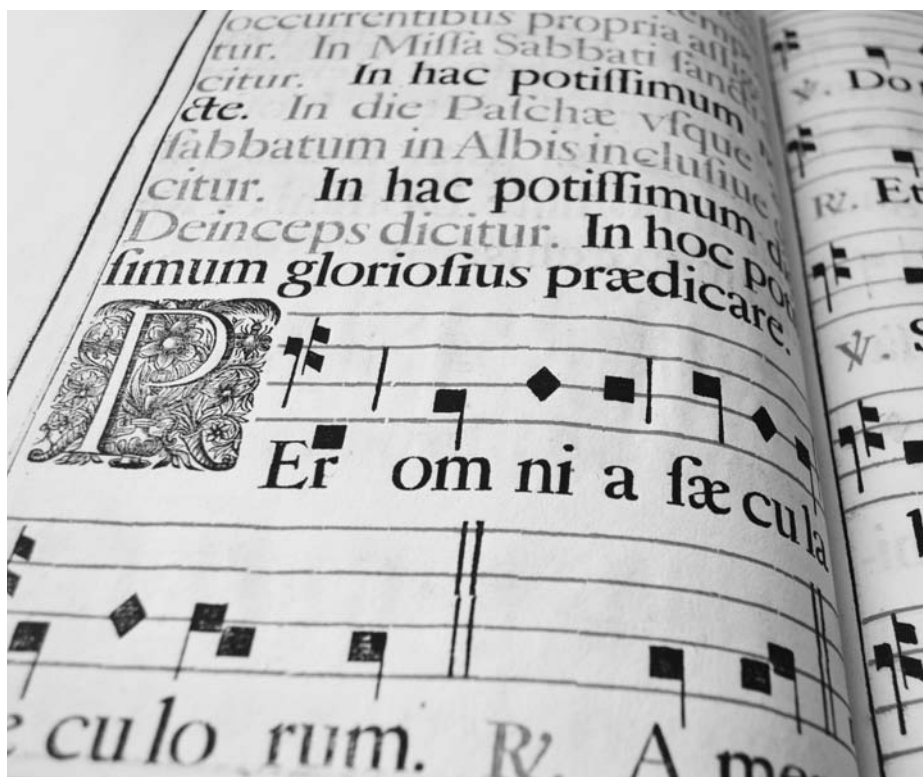 occurrentibus propria
tur. In Miſſa Sabbati
citur. In hac potiſſimum
cte. In die Paſchæ vſque
ſabbatum in Albis incluſiue
citur. In hac potiſſimum
Deinceps dicitur. In hoc
ſimum glorioſius prædicare.
PEr om ni a ſæ cu la
culo rum. R. A
V.
R.
V.